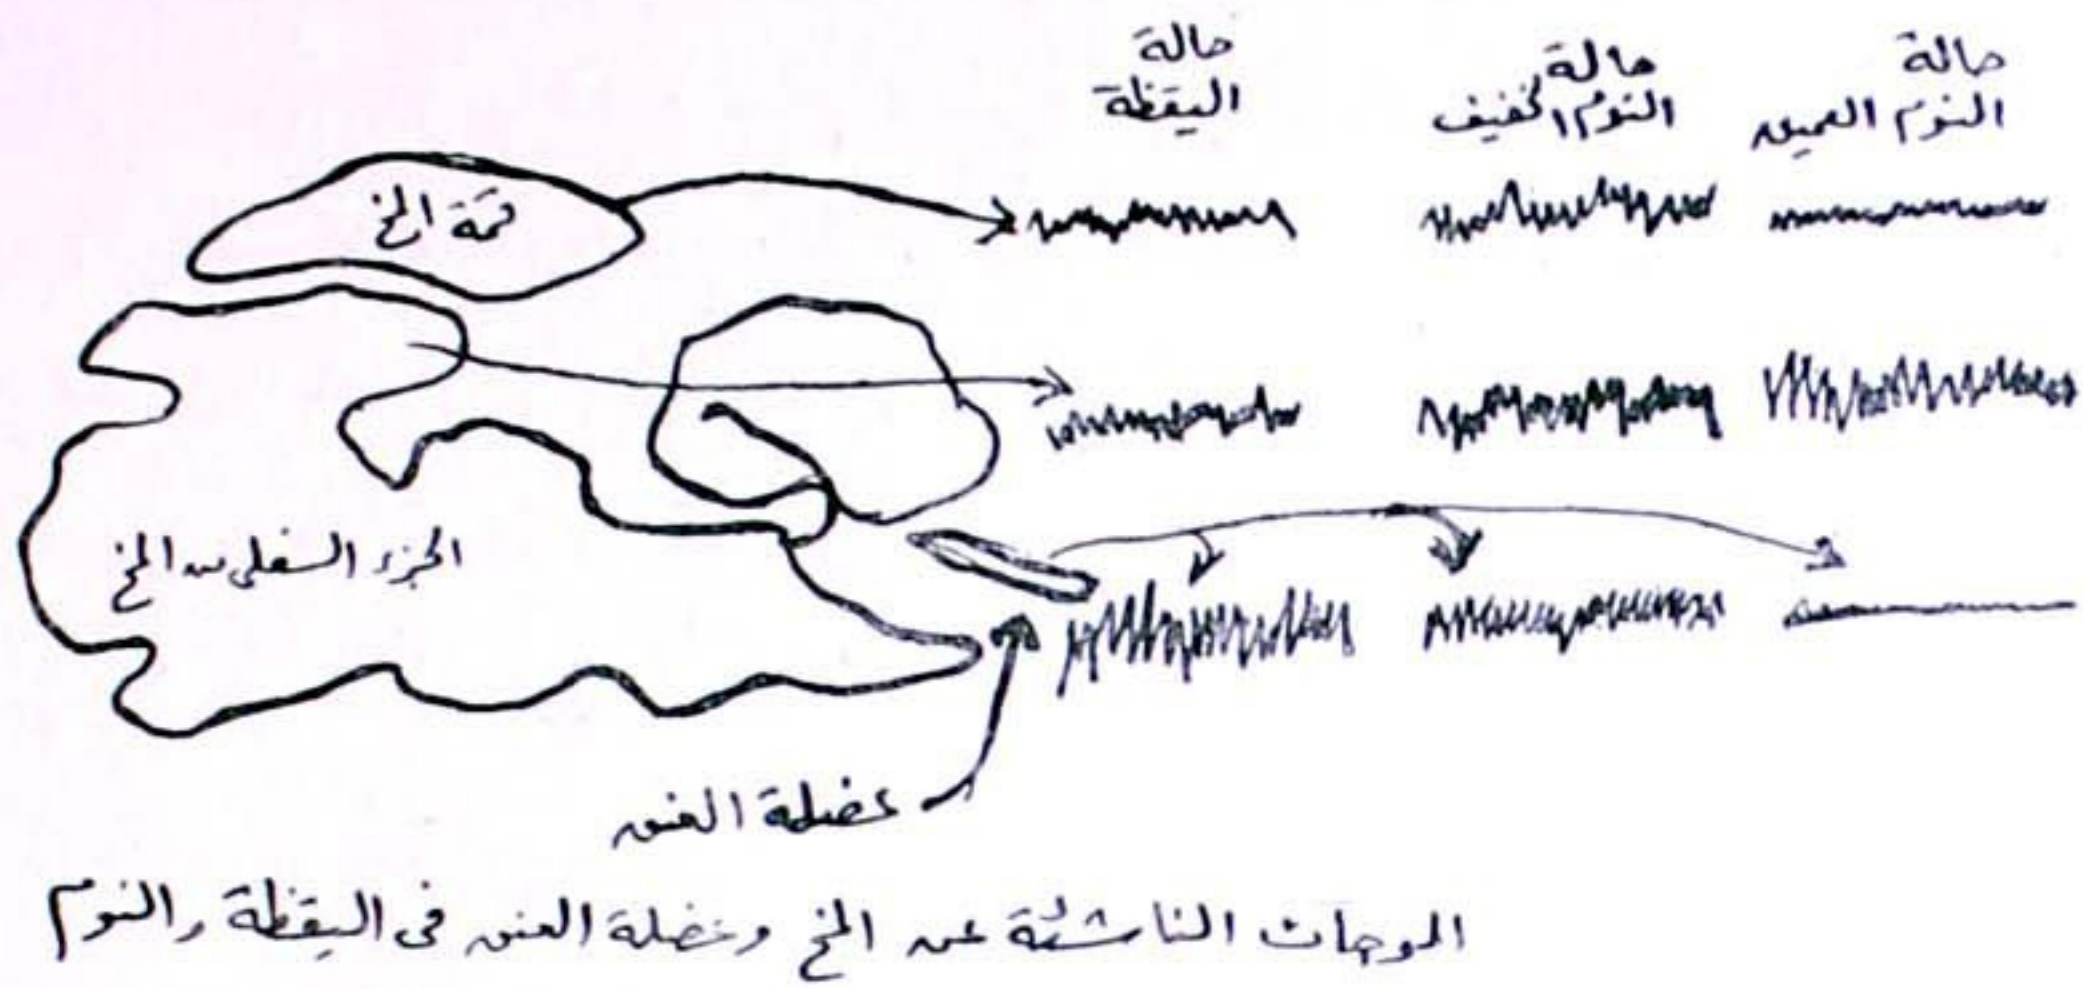 حالة
اليقظة
حالة
النوم الخفيف
حالة
النوم العميق
قمة المخ
الجزء السفلي من المخ
عضلة العنق
الموجات الناشئة عن المخ وعضلة العنق في اليقظة والنوم